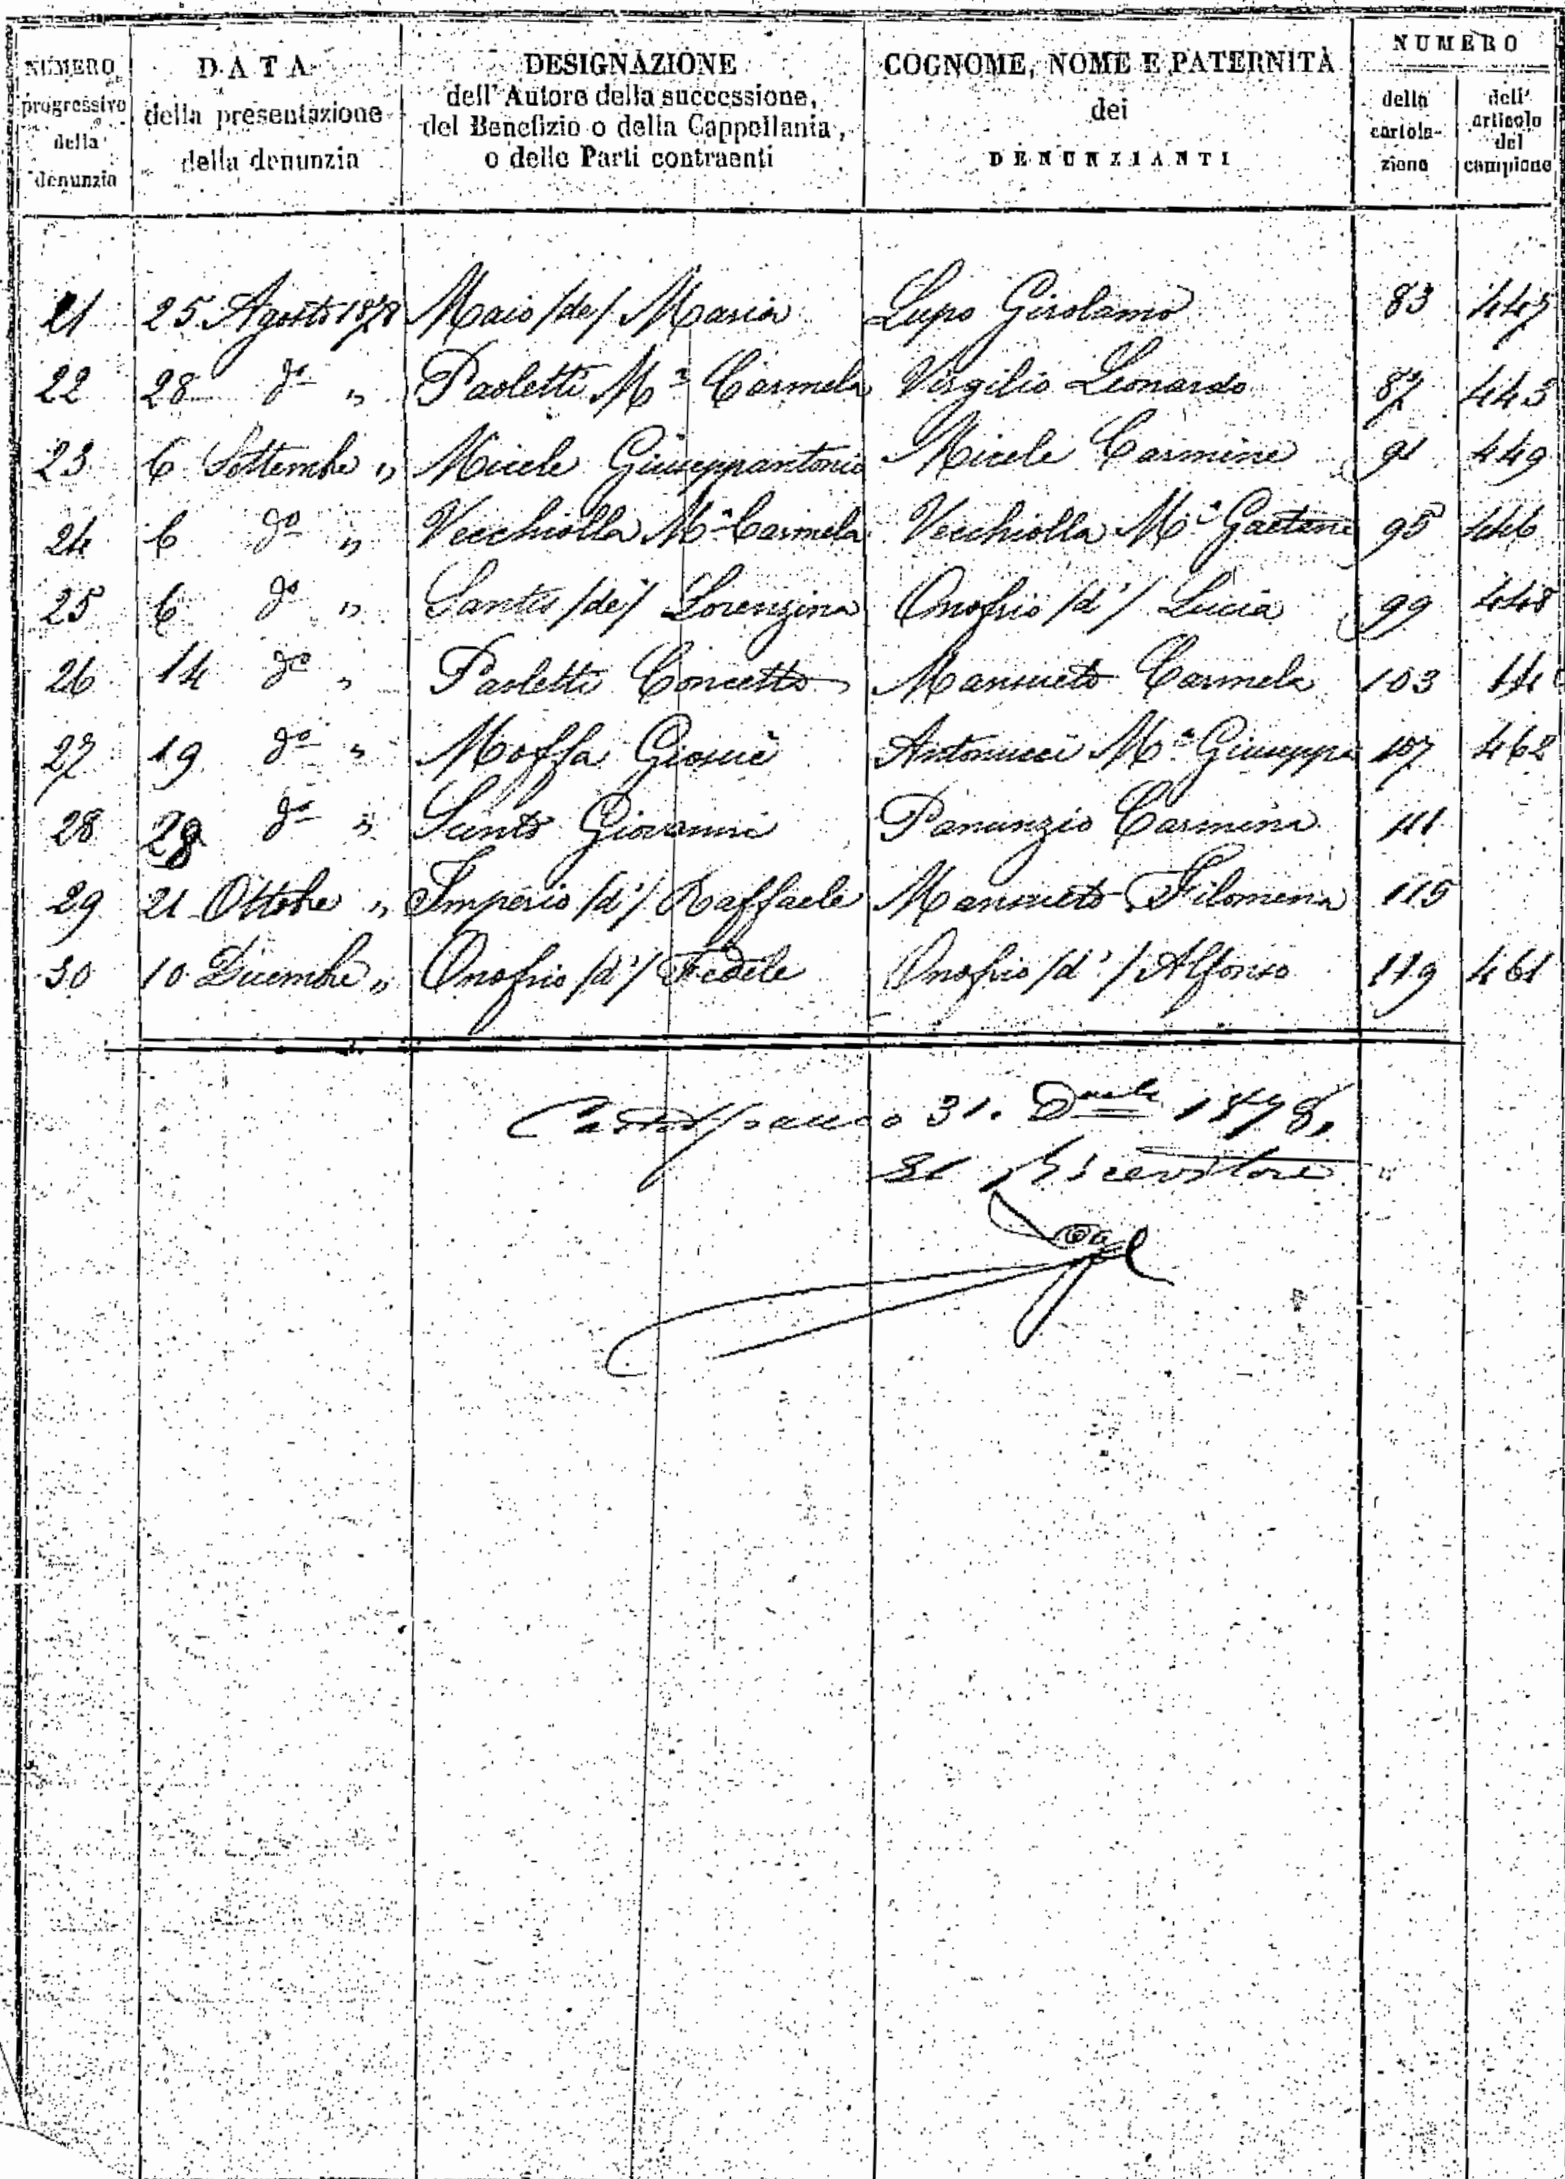 NUMERO progressivo della denunzia
DATA della presentazione della denunzia
DESIGNAZIONE dell'Autore della successione, del Benefizio o della Cappellania, o delle Parti contraenti
COGNOME, NOME E PATERNITÀ dei DENUNZIANTI
NUMERO
della cartolazione
dell' articolo del campione
21 25 Agosto 1878 Maio /de/ Maria Lupo Girolamo 83 447
22 28 do „ Paoletti Ma Carmela Virgilio Leonardo 87 443
23 6 Settembre „ Miele Giuseppantonio Miele Carmine 91 449
24 6 do „ Vecchiolla Ma Carmela Vecchiolla Ma Gaetana 95 446
25 6 do „ Santis /de/ Lorenzina Onofrio /d'/ Lucia 99 448
26 14 do „ Paoletti Concetta Mansueto Carmela 103
27 19 do „ Moffa Giosuè Antonucci Ma Giuseppa 107 462
28 28 do „ Santo Giovanni Panunzio Carmina 111
29 21 Ottobre „ Imperio /d'/ Raffaele Mansueto Filomena 115
30 10 Dicembre „ Onofrio /d'/ Fedele Onofrio /d'/ Alfonso 119 461
31. 1878,
Il Ricevitore